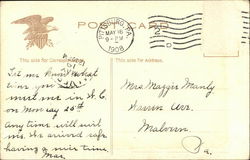 POST CARD
PITTSBURG, PA.
MAY 16
6-PM
1908
This side for Correspondence
This side for Address
Let me know what
time you
meet me in N. C.
on Monday 25th
Any time will suit
me. We arrived safe
having a nice time.
Mae.
Miss Maggie Manly
Warren Ave.
Malvern
Pa.